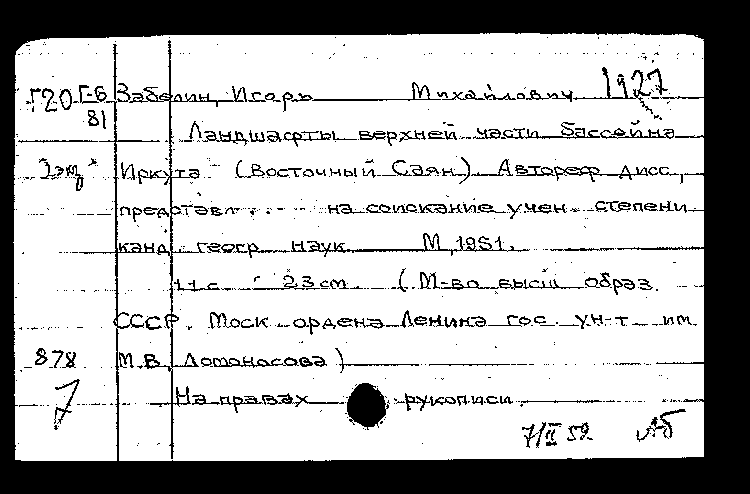 Г20 Г-6 Забелин, Игорь Михайлович 1927
81
Ландшафты верхней части бассейна
1экз Иркута (Восточный Саян). Автореф дисс.,
представл.... на соискание учен. степени
канд. геогр. наук. М, 1951.
11 с. 23 см. (М-во высш образ.
СССР. Моск ордена Ленина гос. ун-т им
878 М.В. Ломоносова)
7 На правах рукописи.
7/II 52 Аб